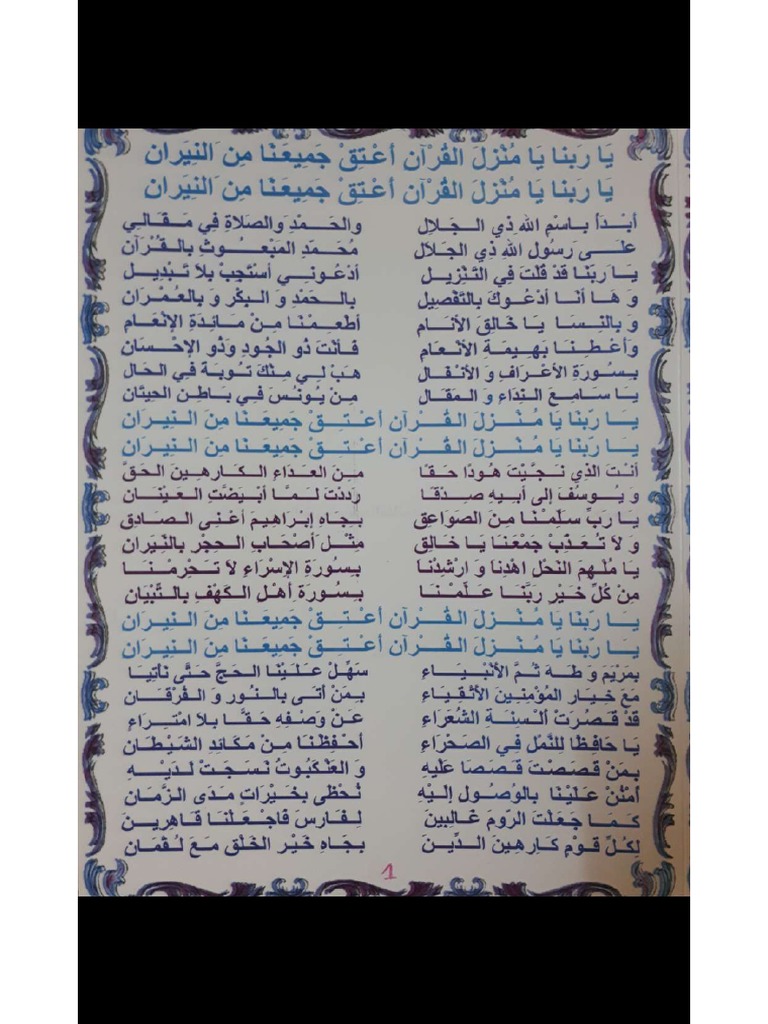 يَا رَبَنا يَا مُنْزِلَ القُرْآن أعْتِقْ جَمِيعَنَا مِنَ النِيَران
يَا رَبَنا يَا مُنْزِلَ القُرْآن أعْتِقْ جَمِيعَنَا مِنَ النِيَران
أبْدَأ باسْمِ اللهِ ذِي الـجَـلالِ والحَـمْدِ وَالصَلاةِ فِي مَـقَـالِي
عَلَـى رَسُولِ اللهِ ذِي الجَلال مُحَـمَدِ المَبْعُـوثِ بالقُـرْآن
يـا رَبّنَا قدْ قلْتَ فِي التَنْزِيـل ادْعُونـي أسْتَجِبْ بلا تَبْدِيـل
وَ هَـا أنـا أدْعُوكَ بالتَفْصِيل بـالحَمْدِ وَ البـكْر وَ بالعُمْرَان
وَ بالنسَـا يَـا خَالِقَ الأنَـام أطعِـمْنَا مِـنْ مَـائِدَةِ الإنْعَام
وَأعْطِنَا بهيمَةِ الأنْعَام فأنْتَ ذُو الجُودِ وَذُو الإحْسَان
بـسُورَةِ الأعْرَافِ وَ الأنْفَـال هَبْ لِـي مِنْكَ تَوبَة فِي الحَال
يـا سـامِعَ النِدَاءِ وَ المَقـال مِـنْ يُونُـسَ فِي بـاطِن الحِيتَان
يَـا رَبّنَا يَا مُـنْـزِلَ القُـرْآن أعْتِـقْ جَمِيعَنـا مِنَ النِـيرَان
يَـا رَبّنَا يَا مُـنْـزِلَ القُـرْآن أعْتِـقْ جَمِيعَنـا مِنَ النِـيرَان
أنْتَ الذِي نَجَيْتَ هُودًا حَـقـا مِـنَ العَدَاءِ الكَارهِينَ الحَقَّ
وَ يُـوسُفَ إلى أبيهِ صِـدْقَـا رَددْتَ لـمَّـا أبْيَضَّتِ العَيْنَـان
يَـا رَبِّ سَلِّمْنَا مِنَ الصَوَاعِق بـجَاهِ إبْرَاهِيمَ أعْنِى الصَـادِق
وَ لا تُعَذِبْ جَمْعَنَا يَـا خَالِق مِثْـلَ أصْحَابِ الحِجْر بالنِّيرَان
يَا مُلْهِمَ النَحْل اهْدِنا وَ ارْشِدْنا بـسُورَةِ الإسْرَاءِ لا تَحْرِمْـنـا
مِنْ كُلِّ خَيْر رَبَّنَا عَلّمْـنـا بـسُورَةِ أهْلِ الكَهْفِ بالتَّبْيَان
يَـا رَبّنَا يَا مُـنْـزِلَ القُـرْآن أعْتِـقْ جَمِيعَنـا مِنَ النِـيرَان
يَـا رَبّنَا يَا مُـنْـزِلَ القُـرْآن أعْتِـقْ جَمِيعَنـا مِنَ النِـيرَان
بمَرْيَمَ وَ طـهَ ثـمَّ الأنْبـيَـاءِ سَهِّلْ عَلَـيْنَا الحَجَّ حَتَّى نأتِيَا
مَعَ خِيَـار المُؤْمِنِينَ الأتْقِيَاءِ بـمَنْ أتَى بالنُور وَ الفُرْقَان
قَدْ قَصُرَتْ ألْسِنَة الشُّعَرَاءِ عَنْ وَصْفِهِ حَقًّا بلا امْتِرَاء
يَـا حَافِظًا للنَّمْل فِي الصَحْرَاء أحْفِظْنَا مِـنْ مَكَائِدِ الشَيْطَان
بـمَنْ قَصَصْتَ قَصَصا عَلَيهِ وَ العَنْكَبُوتُ نَسَجَتْ لدَيْـهِ
أمْنُنْ عَلَيْنَا بالوُصُول إلَيْهِ نُحْظَى بخَيْرَاتٍ مَدَى الزَّمَان
كَمَـا جَعَلْتَ الرُومَ غَالِبينَ لِفَارسَ فاجْعَلْنَا قَاهِرِين
لِكُلِّ قَوْمٍ كَارهِينَ الدِّينَ بـجَاهِ خَيْر الخَلْق مَعَ لُقْمَان
1